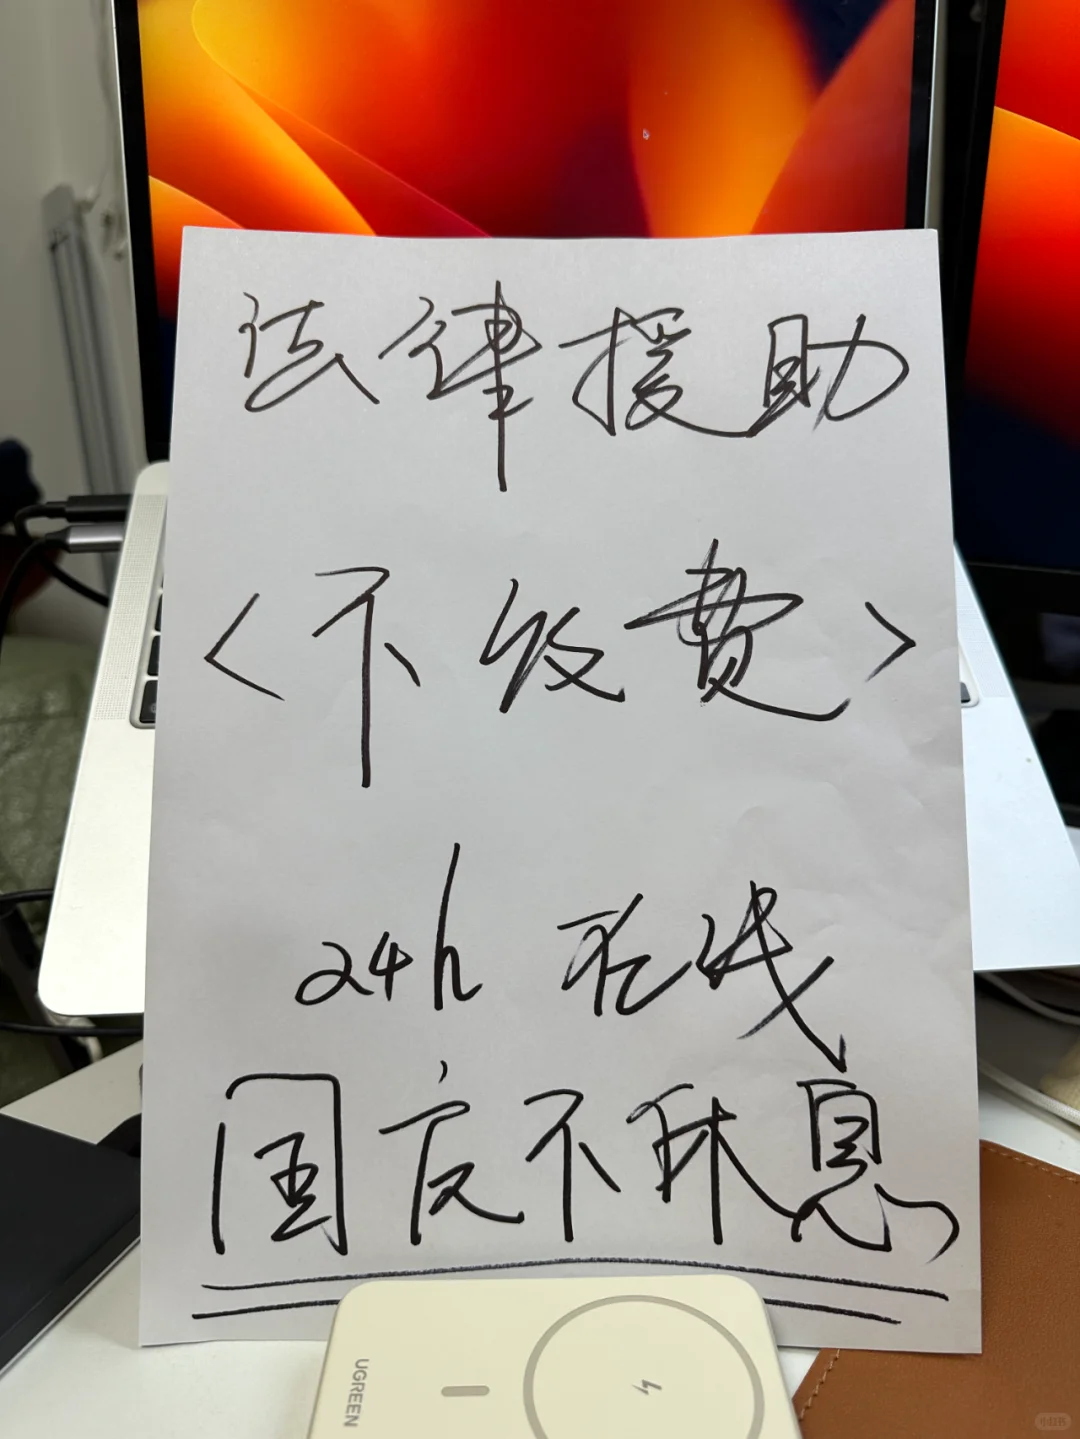 法律援助
<不收费>
24h 在线
国庆不休息
UGREEN
小红书